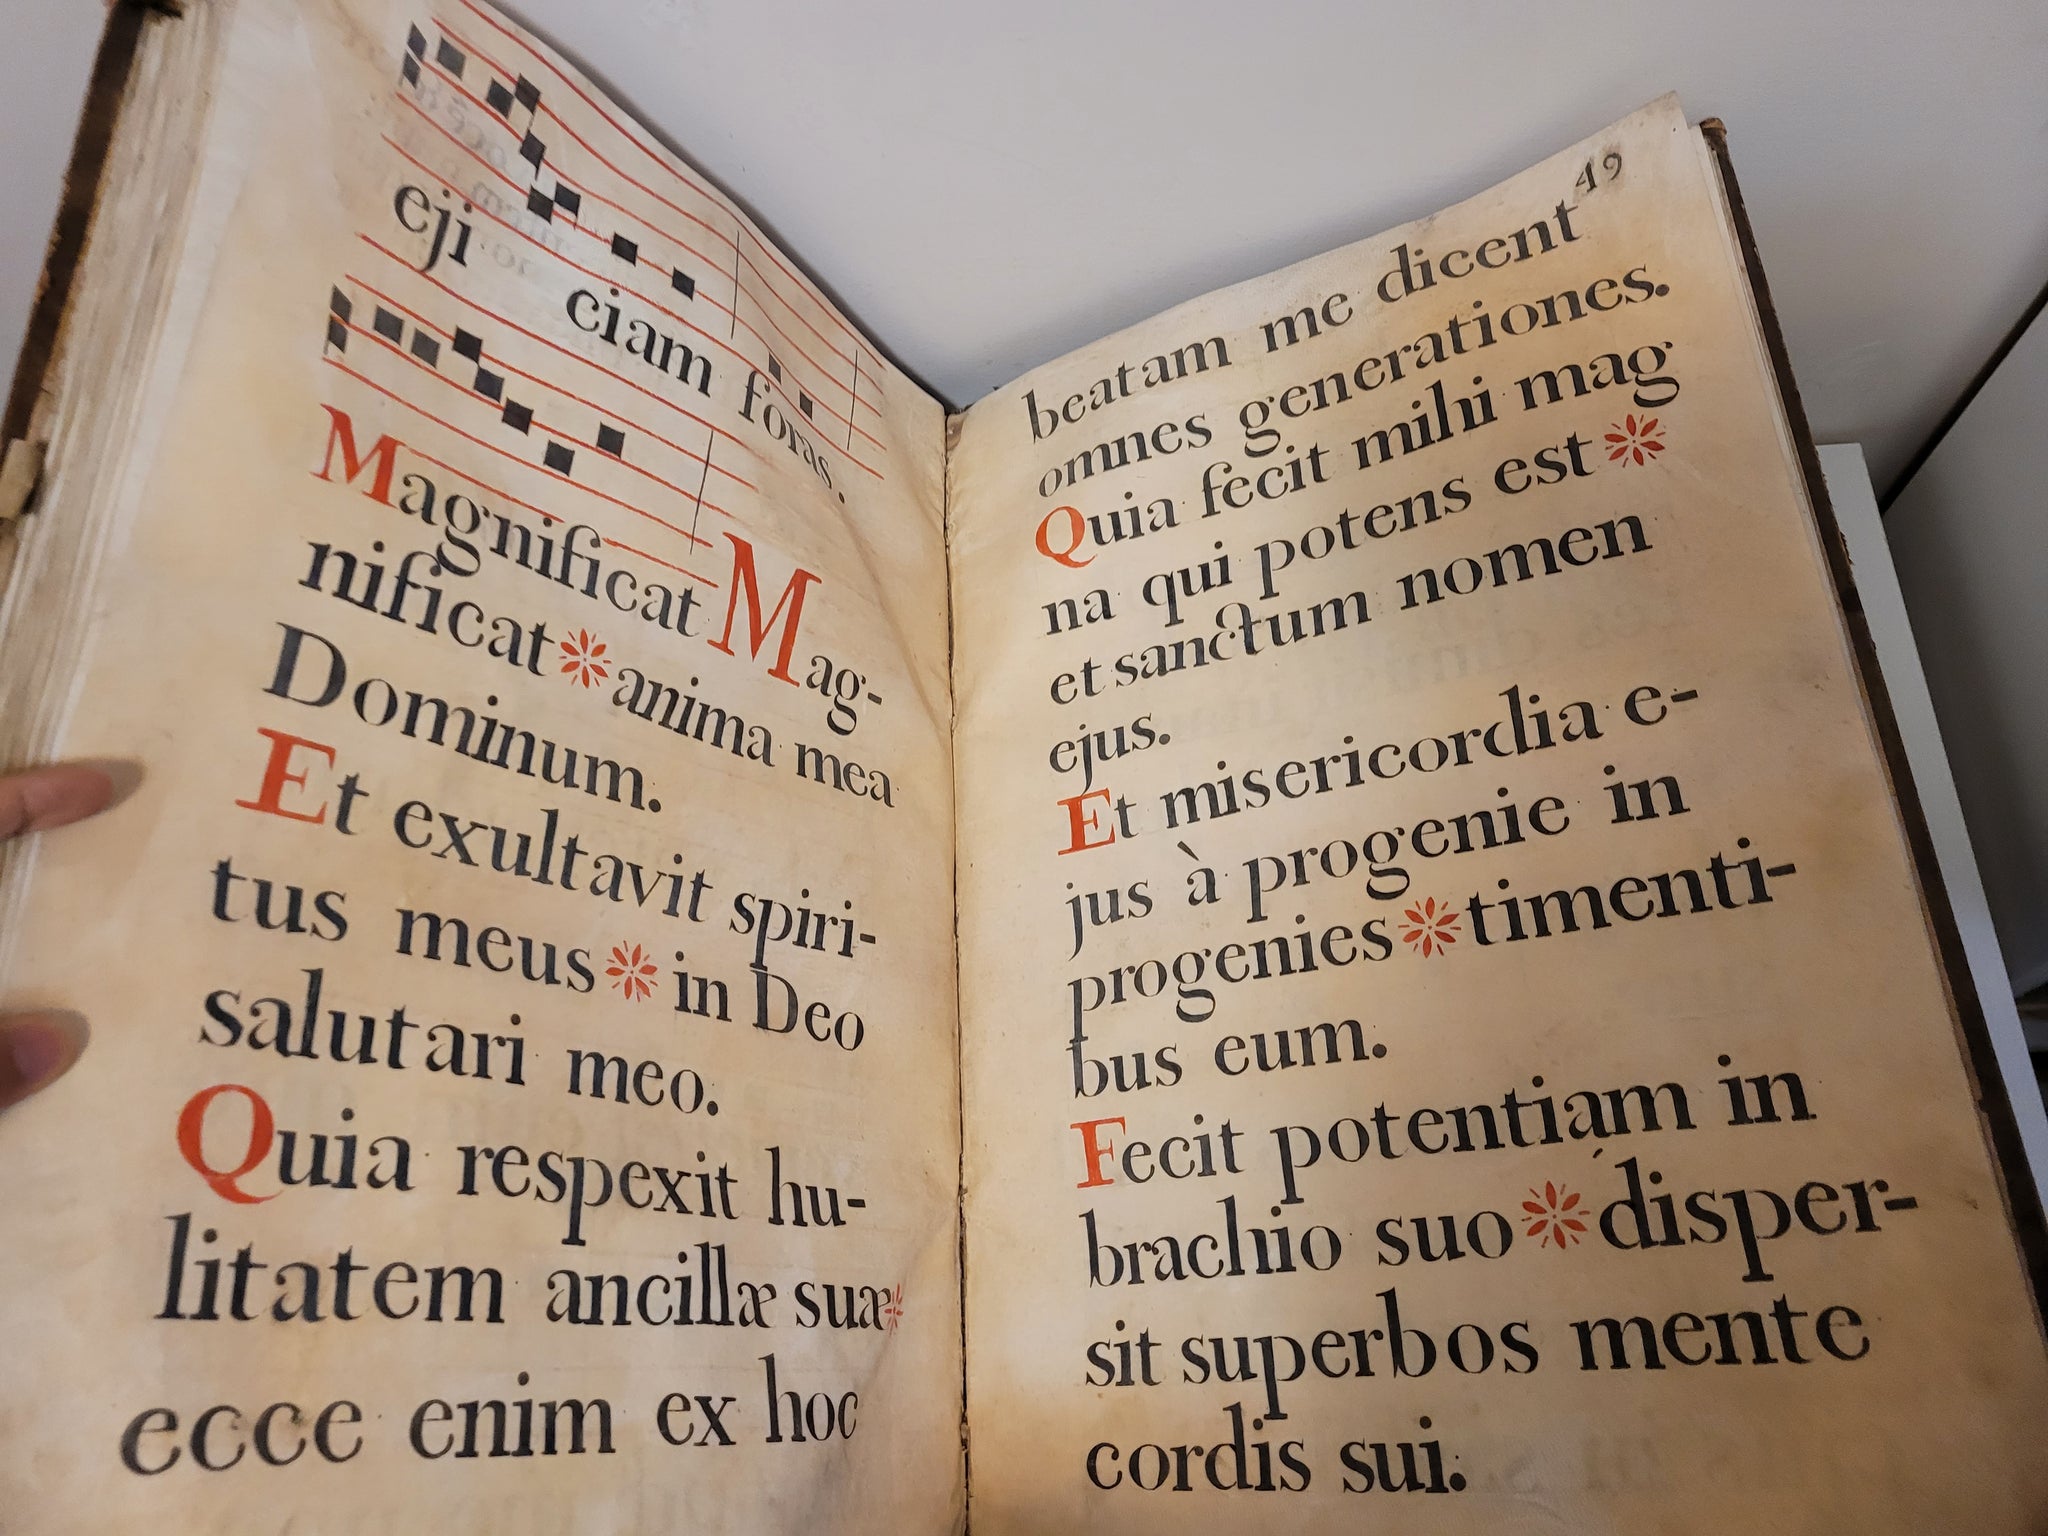 eji ciam foras.
Magnificat Mag-
nificat * anima mea
Dominum.
Et exultavit spiri-
tus meus * in Deo
salutari meo.
Quia respexit hu-
litatem ancillæ suæ *
ecce enim ex hoc
49
beatam me dicent
omnes generationes.
Quia fecit mihi mag
na qui potens est *
et sanctum nomen
ejus.
Et misericordia e-
jus à progenie in
progenies * timenti-
bus eum.
Fecit potentiam in
brachio suo * disper-
sit superbos mente
cordis sui.